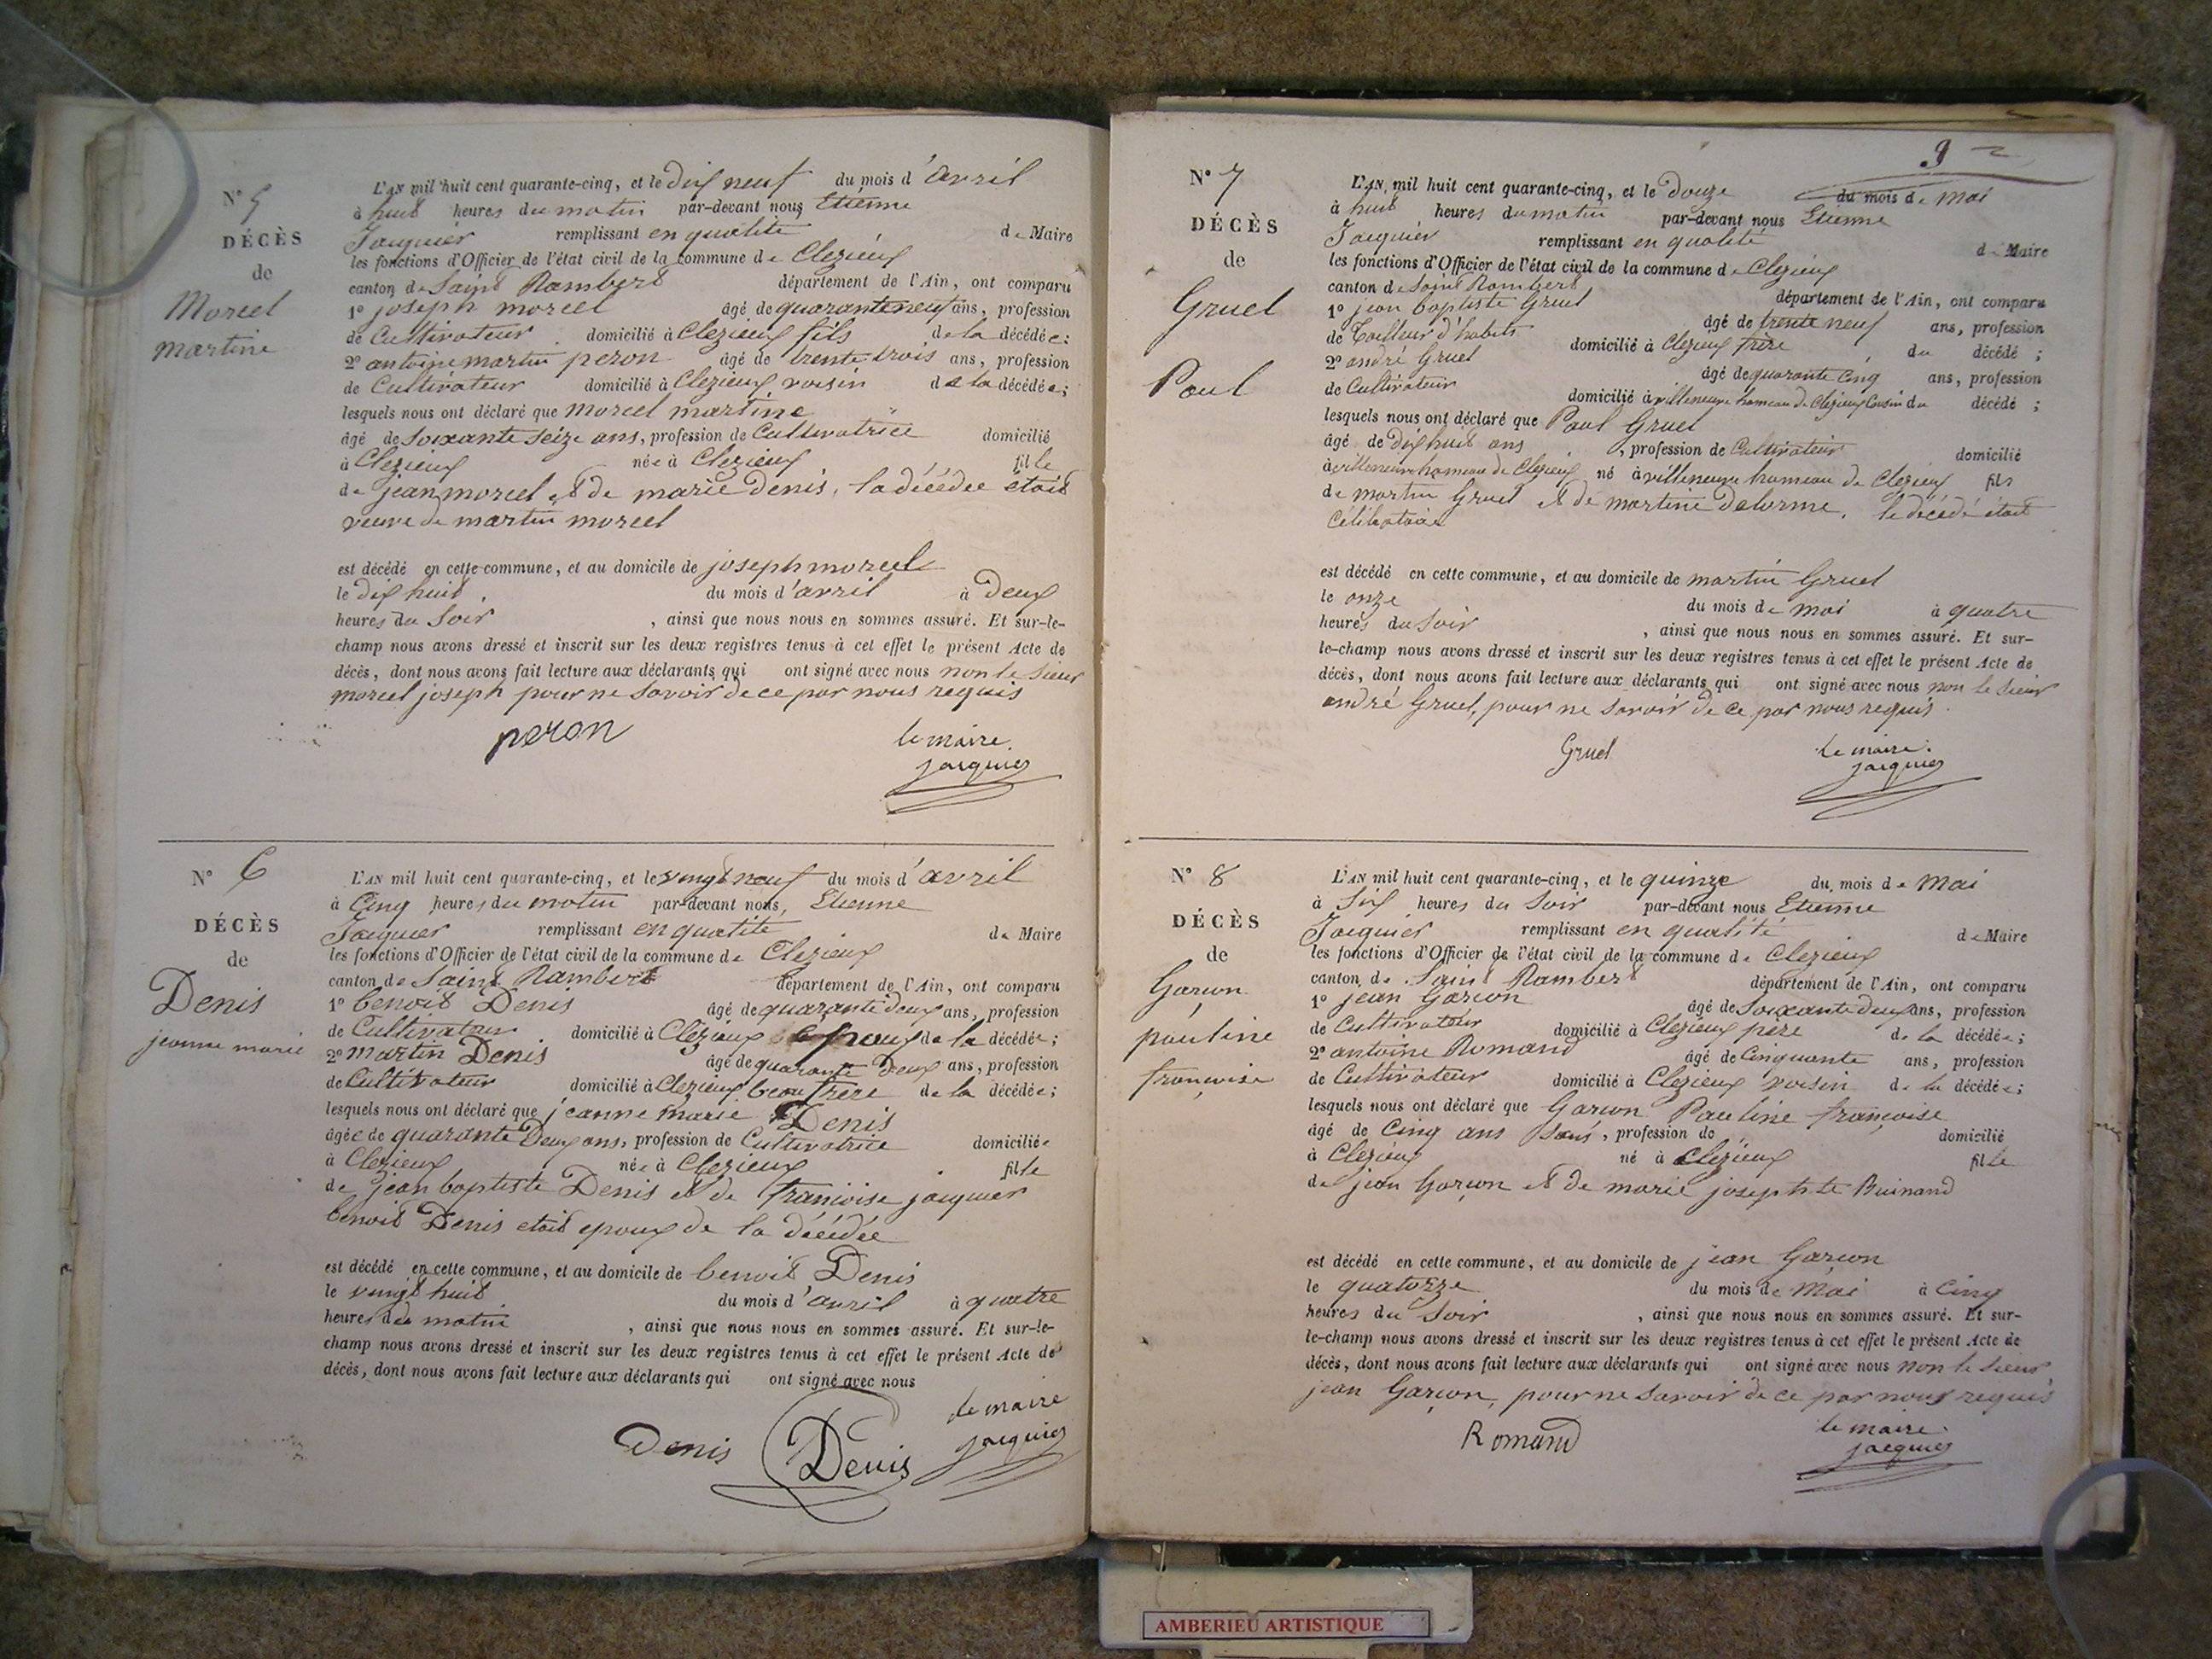 N° 5
DÉCÈS
de
Morcel
martine
L'AN mil huit cent quarante-cinq, et le dix neuf du mois d'avril
à huit heures du matin par-devant nous Etienne
Jacquier remplissant en qualité de Maire
les fonctions d'Officier de l'état civil de la commune de Clezieux
canton de Saint Rambert département de l'Ain, ont comparu
1° joseph morcel âgé de quarante neuf ans, profession
de Cultivateur domicilié à Clezieux fils de la décédée;
2° antoine martin peron âgé de trente trois ans, profession
de Cultivateur domicilié à Clezieux voisin de la décédée;
lesquels nous ont déclaré que morcel martine
âgé de soixante seize ans, profession de Cultivatrice domicilié
à Clezieux née à Clezieux fille
de jean morcel et de marie denis, la décédée etait
veuve de martin morcel
est décédé en cette commune, et au domicile de joseph morcel
le dix huit du mois d'avril à Deux
heures du Soir , ainsi que nous nous en sommes assuré. Et sur-le-
champ nous avons dressé et inscrit sur les deux registres tenus à cet effet le présent Acte de
décès, dont nous avons fait lecture aux déclarants qui ont signé avec nous non le sieur
morcel joseph pour ne savoir de ce par nous requis
peron
le maire.
jacquier
N° 6
DÉCÈS
de
Denis
jeanne marie
L'AN mil huit cent quarante-cinq, et le vingt neuf du mois d'avril
à Cinq heures du matin par-devant nous, Etienne
Jacquier remplissant en qualité de Maire
les fonctions d'Officier de l'état civil de la commune de Clezieux
canton de Saint Rambert département de l'Ain, ont comparu
1° benoit Denis âgé de quarante deux ans, profession
de Cultivateur domicilié à Clezieux epoux de la décédée;
2° Martin Denis âgé de quarante Deux ans, profession
de Cultivateur domicilié à Clezieux beau frere de la décédée;
lesquels nous ont déclaré que jeanne marie Denis
âgée de quarante Deux ans, profession de Cultivatrice domiciliée
à Clezieux née à Clezieux fille
de jean baptiste Denis et de françoise jacquier
benoit Denis etait epoux de la décédée
est décédé en cette commune, et au domicile de benoit Denis
le vingt huit du mois d'avril à quatre
heures du matin , ainsi que nous nous en sommes assuré. Et sur-le-
champ nous avons dressé et inscrit sur les deux registres tenus à cet effet le présent Acte de
décès, dont nous avons fait lecture aux déclarants qui ont signé avec nous
Denis Denis
le maire
jacquier
N° 7
DÉCÈS
de
Gruel
Paul
L'AN mil huit cent quarante-cinq, et le douze du mois de mai
à huit heures du matin par-devant nous Etienne
Jacquier remplissant en qualité de Maire
les fonctions d'Officier de l'état civil de la commune de Clezieux
canton de Saint Rambert département de l'Ain, ont comparu
1° jean baptiste Gruel âgé de trente neuf ans, profession
de Tailleur d'habits domicilié à Clezieux frère du décédé ;
2° andré Gruel âgé de quarante Cinq ans, profession
de Cultivateur domicilié à villeneuve hameau de Clezieux Cousin du décédé ;
lesquels nous ont déclaré que Paul Gruel
âgé de dix huit ans , profession de Cultivateur domicilié
à villeneuve hameau de Clezieux né à villeneuve hameau de Clezieux fils
de martin Gruel et de martine Delorme. le décédé étoit
Célibataire
est décédé en cette commune, et au domicile de martin Gruel
le onze du mois de mai à quatre
heures du Soir , ainsi que nous nous en sommes assuré. Et sur-
le-champ nous avons dressé et inscrit sur les deux registres tenus à cet effet le présent Acte de
décès, dont nous avons fait lecture aux déclarants qui ont signé avec nous non le sieur
andré Gruel, pour ne savoir de ce par nous requis.
Gruel
le maire.
jacquier
N° 8
DÉCÈS
de
Garçon
pauline
françoise
L'AN mil huit cent quarante-cinq, et le quinze du mois de Mai
à Six heures du Soir par-devant nous Etienne
Jacquier remplissant en qualité de Maire
les fonctions d'Officier de l'état civil de la commune de Clezieux
canton de Saint Rambert département de l'Ain, ont comparu
1° jean Garçon âgé de Soixante deux ans, profession
de Cultivateur domicilié à Clezieux père de la décédée;
2° antoine Romand âgé de Cinquante ans, profession
de Cultivateur domicilié à Clezieux voisin de la décédée;
lesquels nous ont déclaré que Garçon Pauline françoise
âgé de Cinq ans Sans, profession de domicilié
à Clezieux né à Clezieux fille
de jean Garçon et de marie josephte Buinand
est décédé en cette commune, et au domicile de jean Garçon
le quatorze du mois de Mai à Cinq
heures du Soir , ainsi que nous nous en sommes assuré. Et sur-
le-champ nous avons dressé et inscrit sur les deux registres tenus à cet effet le présent Acte de
décès, dont nous avons fait lecture aux déclarants qui ont signé avec nous non le sieur
jean Garçon, pour ne savoir de ce par nous requis
Romand
le maire.
jacquier
AMBERIEU ARTISTIQUE